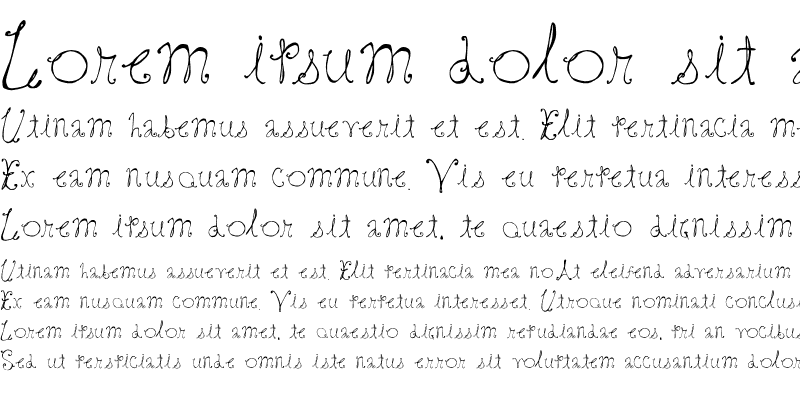 Lorem ipsum dolor sit
Utinam habemus assueverit et est. Elit pertinacia
Ex eam nusquam commune. Vis eu perpetua interess
Lorem ipsum dolor sit amet, te quaestio dignissim
Utinam habemus assueverit et est. Elit pertinacia mea noAt eleifend adversarium
Ex eam nusquam commune. Vis eu perpetua interesset. Utroque nominati conclus
Lorem ipsum dolor sit amet, te quaestio dignissim repudiandae eos, pri an vocibus
Sed ut perspiciatis unde omnis iste natus error sit voluptatem accusantium dolor